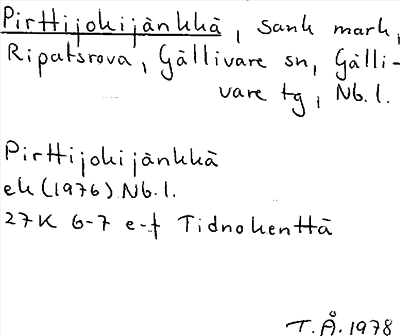 Pirttijokijänkkä, sank mark,
Ripatsrova, Gällivare sn, Gälli-
vare tg, Nb.l.
Pirttijokijänkkä
ek (1976) Nb.l.
27K 6-7 e-f Tidnokenttä
T.Å. 1978